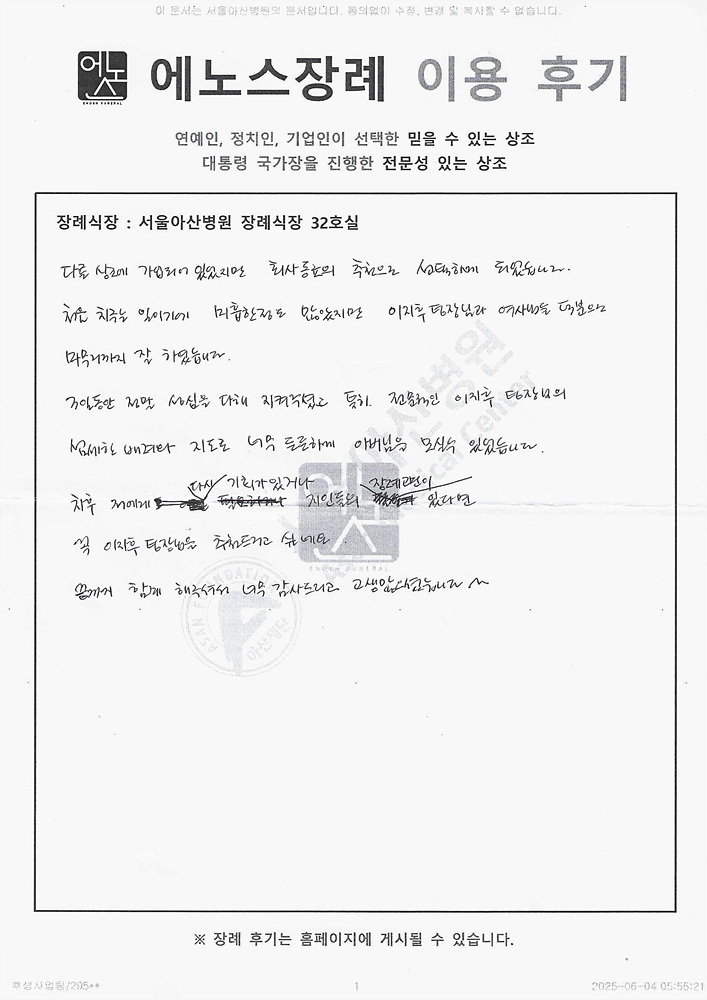 이 문서는 서울아산병원의 문서입니다. 동의없이 수정, 변경 및 복사할 수 없습니다.
에노스
ENOSE FUNERAL
에노스장례 이용 후기
연예인, 정치인, 기업인이 선택한 믿을 수 있는 상조
대통령 국가장을 진행한 전문성 있는 상조
장례식장 : 서울아산병원 장례식장 32호실
다른 상조에 가입되어 있었지만 회사동료의 추천으로 선택하게 되었습니다.
처음 치루는 일이기에 미흡한점도 많았지만 이지후 팀장님과 여사님들 덕분으로
마무리까지 잘 하였습니다.
3일동안 정말 성심을 다해 지켜주셨고 특히 전문적인 이지후 팀장님의
섬세한 배려와 지도로 너무 든든하게 아버님을 모실수 있었습니다.
다시 기회가 있거나 장례관련이
차후 저에게 지인들의 있다면
꼭 이지후 팀장님을 추천드리고 싶네요.
끝까지 함께 해주셔서 너무 감사드리고 고생많으셨습니다~
서울아산병원
Asan Medical Center
에노스
ENOSE FUNERAL
ASAN FOUNDATION
아산재단
※ 장례 후기는 홈페이지에 게시될 수 있습니다.
후생사업팀/295**
1
2025-06-04 05:55:21